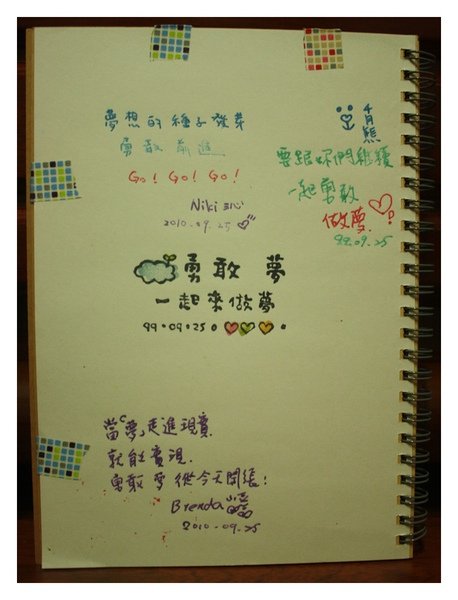 夢想的種子發芽
勇敢前進
Go! Go! Go!
Niki
2010.09.25
要跟你們繼續
一起勇敢
做夢
99.09.25
勇敢 夢
一起來做夢
99.09.25
當「夢」走進現實
就能實現.
勇敢 夢 從今天開張!
Brenda
2010.09.25